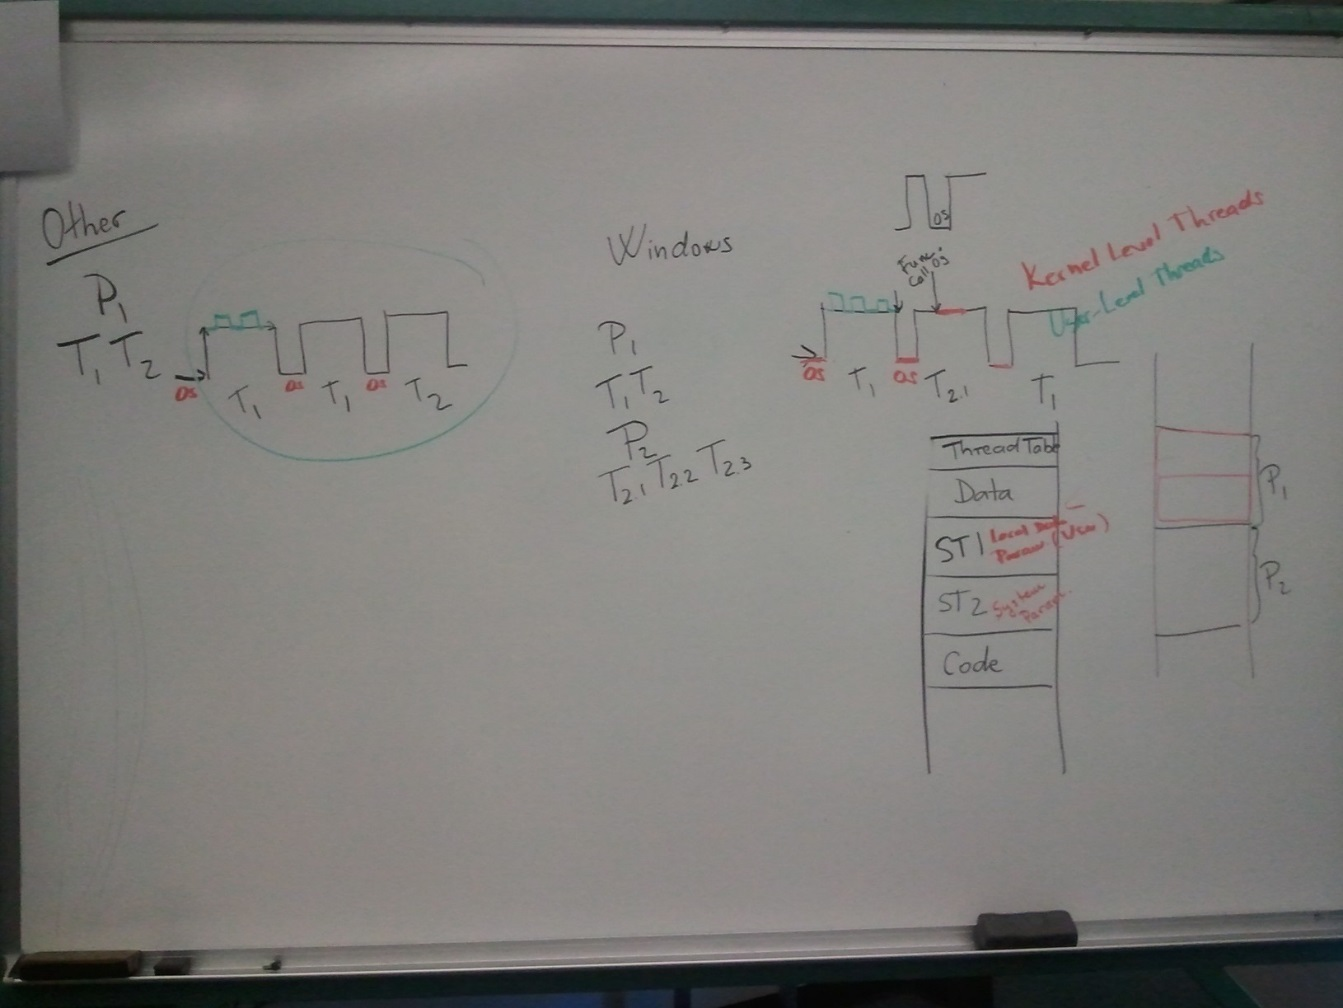 Other
P1
T1 T2
OS
OS
OS
T1 T1 T2
Windows
P1
T1 T2
P2
T2.1 T22 T2.3
OS
Func.
Call OS
Kernel Level Threads
User-Level Threads
OS
OS
T1 T2.1 T1
Thread Table
Data
ST1 Local Data
Param (User)
ST2 System
Param.
Code
P1
P2